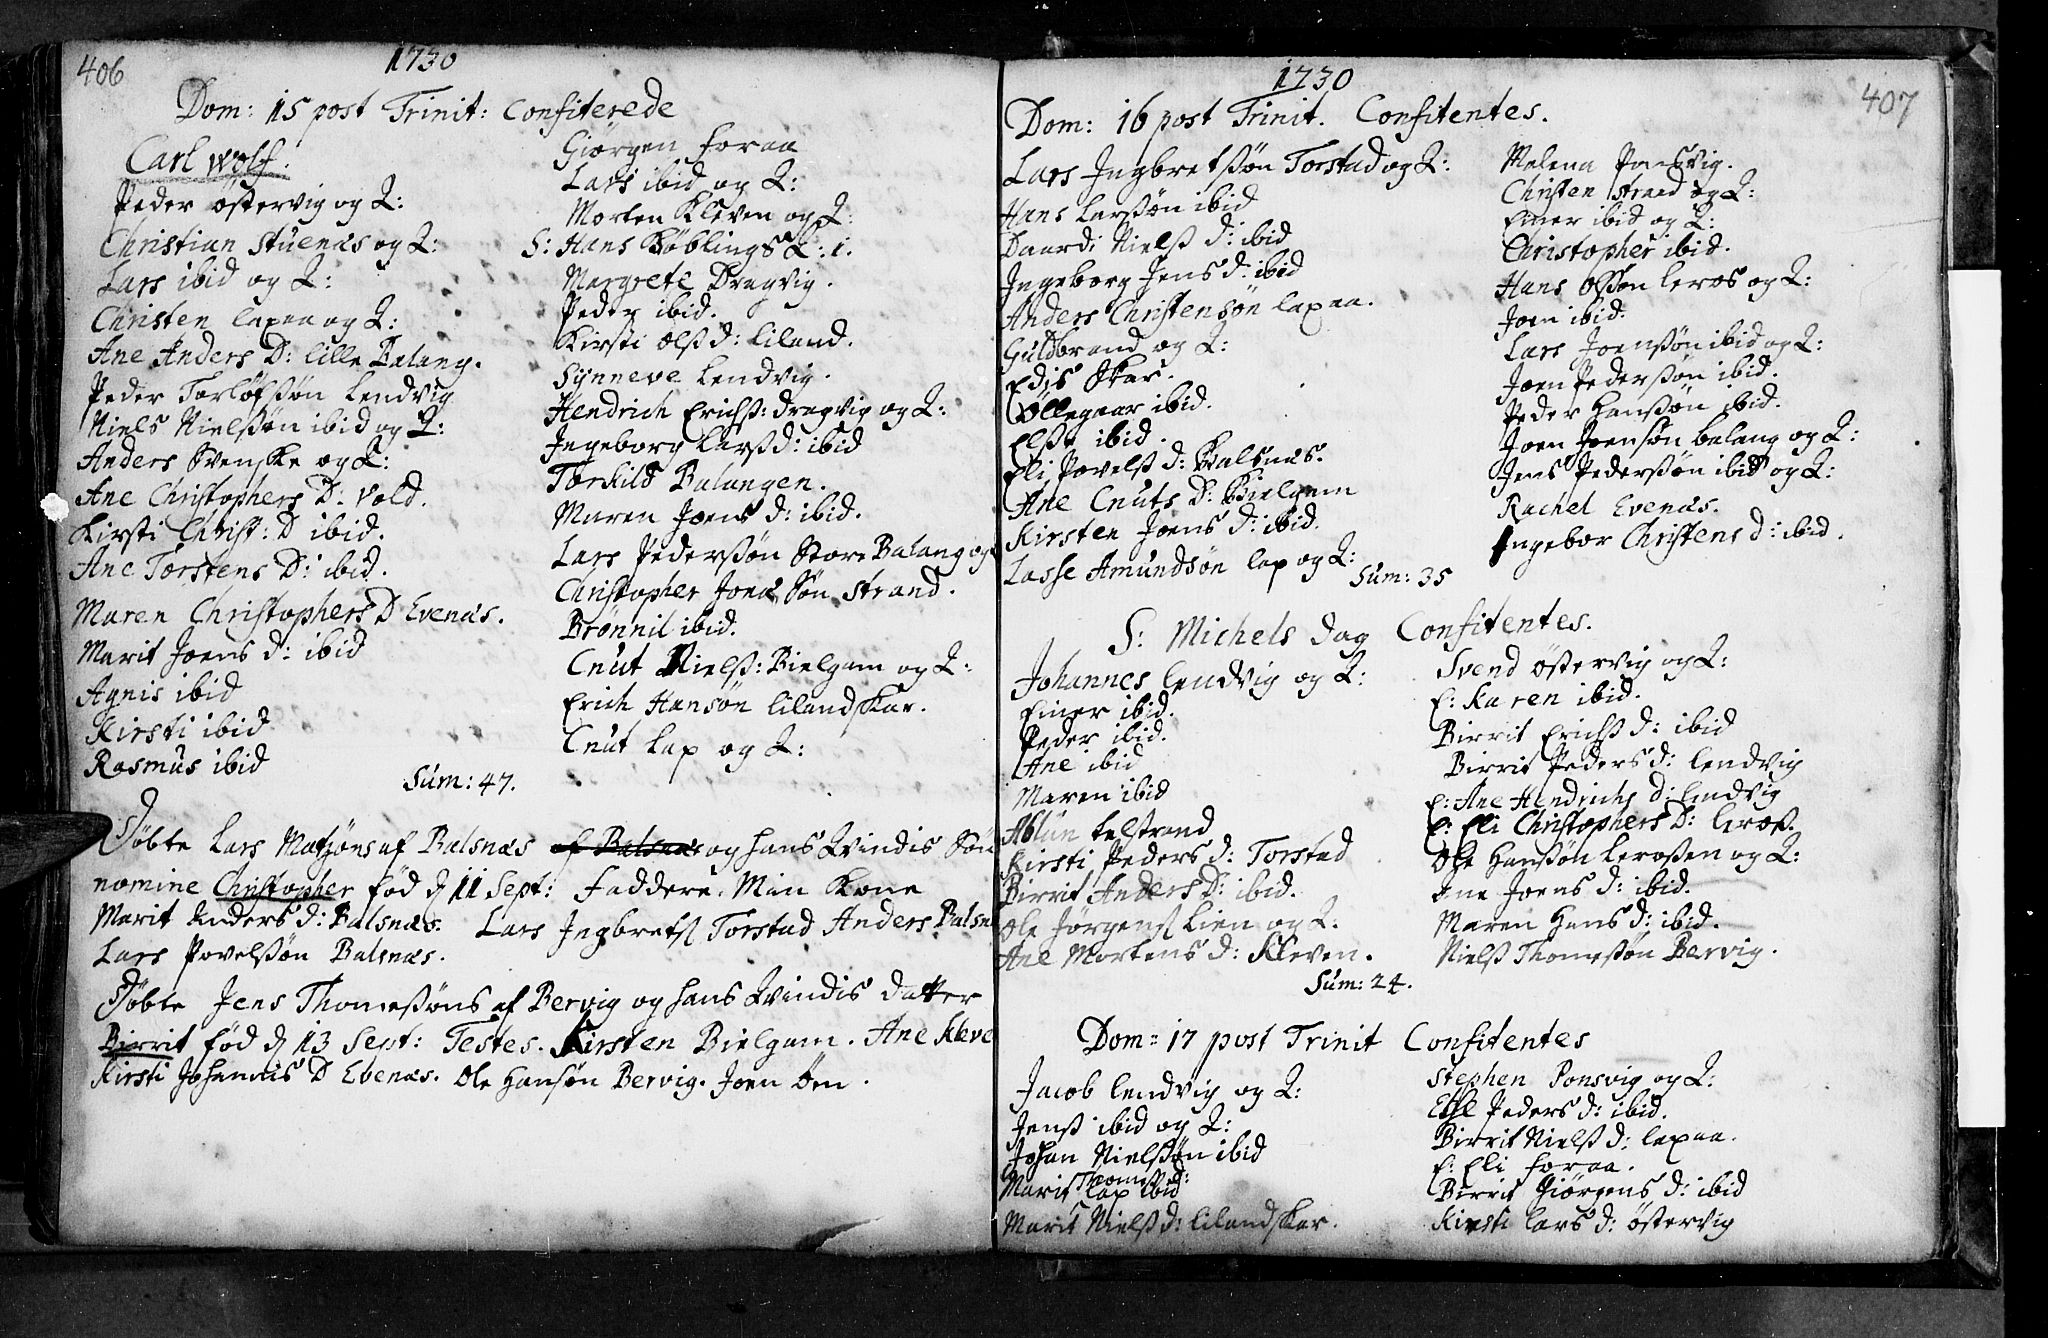 406
1730
Dom: 15 post Trinit: Confiterede
Carl Wolf.
Peder Østervig og Q:
Christian Stuenæs og Q:
Lars ibid og Q:
Christen laxaa og Q:
Ane Anders D: lille Balang.
Peder Torlofsøn Lendvig
Niels Nielssøn ibid og Q:
Anders Svenske og Q:
Ane Christophers D: Vold.
Kirsti Christ: D ibid.
Ane Torstens D: ibid.
Maren Christophers D Evenæs.
Marit Joens d: ibid
Agnis ibid
Kirsti ibid
Rasmus ibid
Giörgen foraa
Lars ibid og Q:
Morten Kleven og Q:
S: Hans Köblings Q: i.
Margrete Dragvig.
Peder ibid.
Kirsti Olss d: liland.
Synneve Lendvig.
Hendrich Erichss: dragvig og Q:
Ingeborg larss d: ibid
Torkild Balangen.
Maren Joens d: ibid.
Lars Pederssøn Store Balang og
Christopher Jonæ Søn Strand.
Brönnil ibid.
Cnut Nielss: Bielgam og Q:
Erich Hansøn lilandskar.
Cnut Lap og Q:
Sum: 47.
Döbte Lars Matsöns af Balsnæs af Balsnæs og hans Qvindis Søn
nomine Christopher föd d 11 Sept: Faddere. Min Kone
Marit Anders d: Balsnæs. Lars Ingbrets Torstad Anders Balsn
Lars Povelssøn Balsnæs.
Döbte Jens Thomessøns af Bervig og hans Qvindis datter
Birrit föd d 13 Sept: Testes. Kirsten Bielgam. Ane Kleve
Kirsti Johannis D Evenæs. Ole Hansøn Bervig. Joen Øen.
1730
407
Dom: 16 post Trinit. Confitentes.
Lars Ingbretssøn Torstad og Q:
Hans larssøn ibid
Daardi Nielss d: ibid
Ingeborg Jens d: ibid
Anders Christensøn laxaa.
Guldbrand og Q:
Edis Skar.
Øllegaar ibid.
Elsse ibid.
Eli Povelss d: Balsnæs.
Ane Cnuts D: Bielgam
Kirsten Joens d: ibid.
Lasse Amundsøn lap og Q:
Malena Ponsvig.
Christen Strand og Q:
Einer ibid og Q:
Christopher ibid.
Hans Olssøn Leros og Q:
Joen ibid.
Lars Joenssøn ibid og Q:
Joen Pederssøn ibid.
Peder Hanssøn ibid.
Joen Joensøn balang og Q:
Jens Pederssøn ibid og Q:
Rachel Evenæs.
Ingebor Christens d: ibid.
Sum: 35
S: Michels dag Confitentes.
Johannes lendvig og Q:
Einer ibid.
Peder ibid.
Ane ibid
Maren ibid
Ablun telstrand
Kirsti Peders d: Torstad
Birrit Anders D: ibid.
Ole Jørgens Lien og Q:
Ane Mortens d: Kleven.
Svend Østervig og Q:
E: Karen ibid.
Birrit Erichss d: ibid
Birrit Peders d: lendvig
E: Ane Hendrichs d: lendvig
E: Eli Christophers D: leross.
Ole Hanssøn Lerossen og Q:
Ane Joens d: ibid.
Maren Hans d: ibid.
Nielss Thomessøn Bervig.
Sum: 24.
Dom: 17 post Trinit Confitentes
Jacob lendvig og Q:
Jenss ibid og Q:
Johan Nielssøn ibid
Marit Thomss d: lap ibid
Marit Nielss d: lilandskar.
Stephen Ponsvig og Q:
Else Peders d: ibid.
Birrit Nielss d: laxaa.
E: Eli foraa.
Birrit Giörgens d: ibid
Kirsti lars d: Østervig